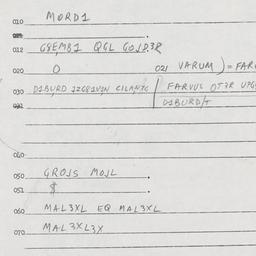 010 MORD1
012 GREMB1 QGL GOJD.3R
020 O 021 VARUM ) = FAR
030 D1BURD 1ZGR1V1N CILANTC / FARVUL OT3R UPG
031 D1BURD/T
040
050 GROJS MOJL
051 $
060 MAL3XL EQ MAL3XL
070 MAL3XL3X